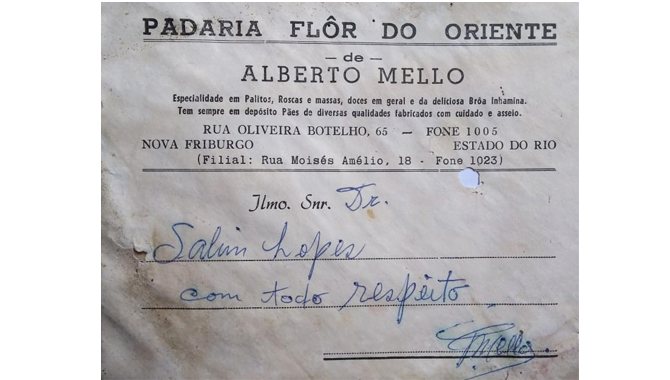 PADARIA FLÔR DO ORIENTE
— de —
ALBERTO MELLO
Especialidade em Palitos, Roscas e massas, doces em geral e da deliciosa Brôa Inhamina.
Tem sempre em depósito Pães de diversas qualidades fabricados com cuidado e asseio.
RUA OLIVEIRA BOTELHO, 65 — FONE 1005
NOVA FRIBURGO ESTADO DO RIO
(Filial: Rua Moisés Amélio, 18 - Fone 1023)
Ilmo. Snr. Dr.
Salim Lopes
com todo respeito
Mello